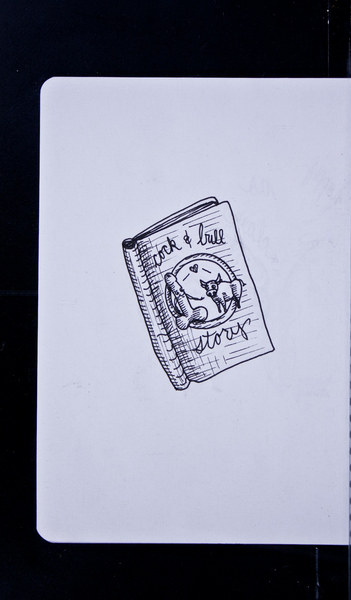 cock & bull
story